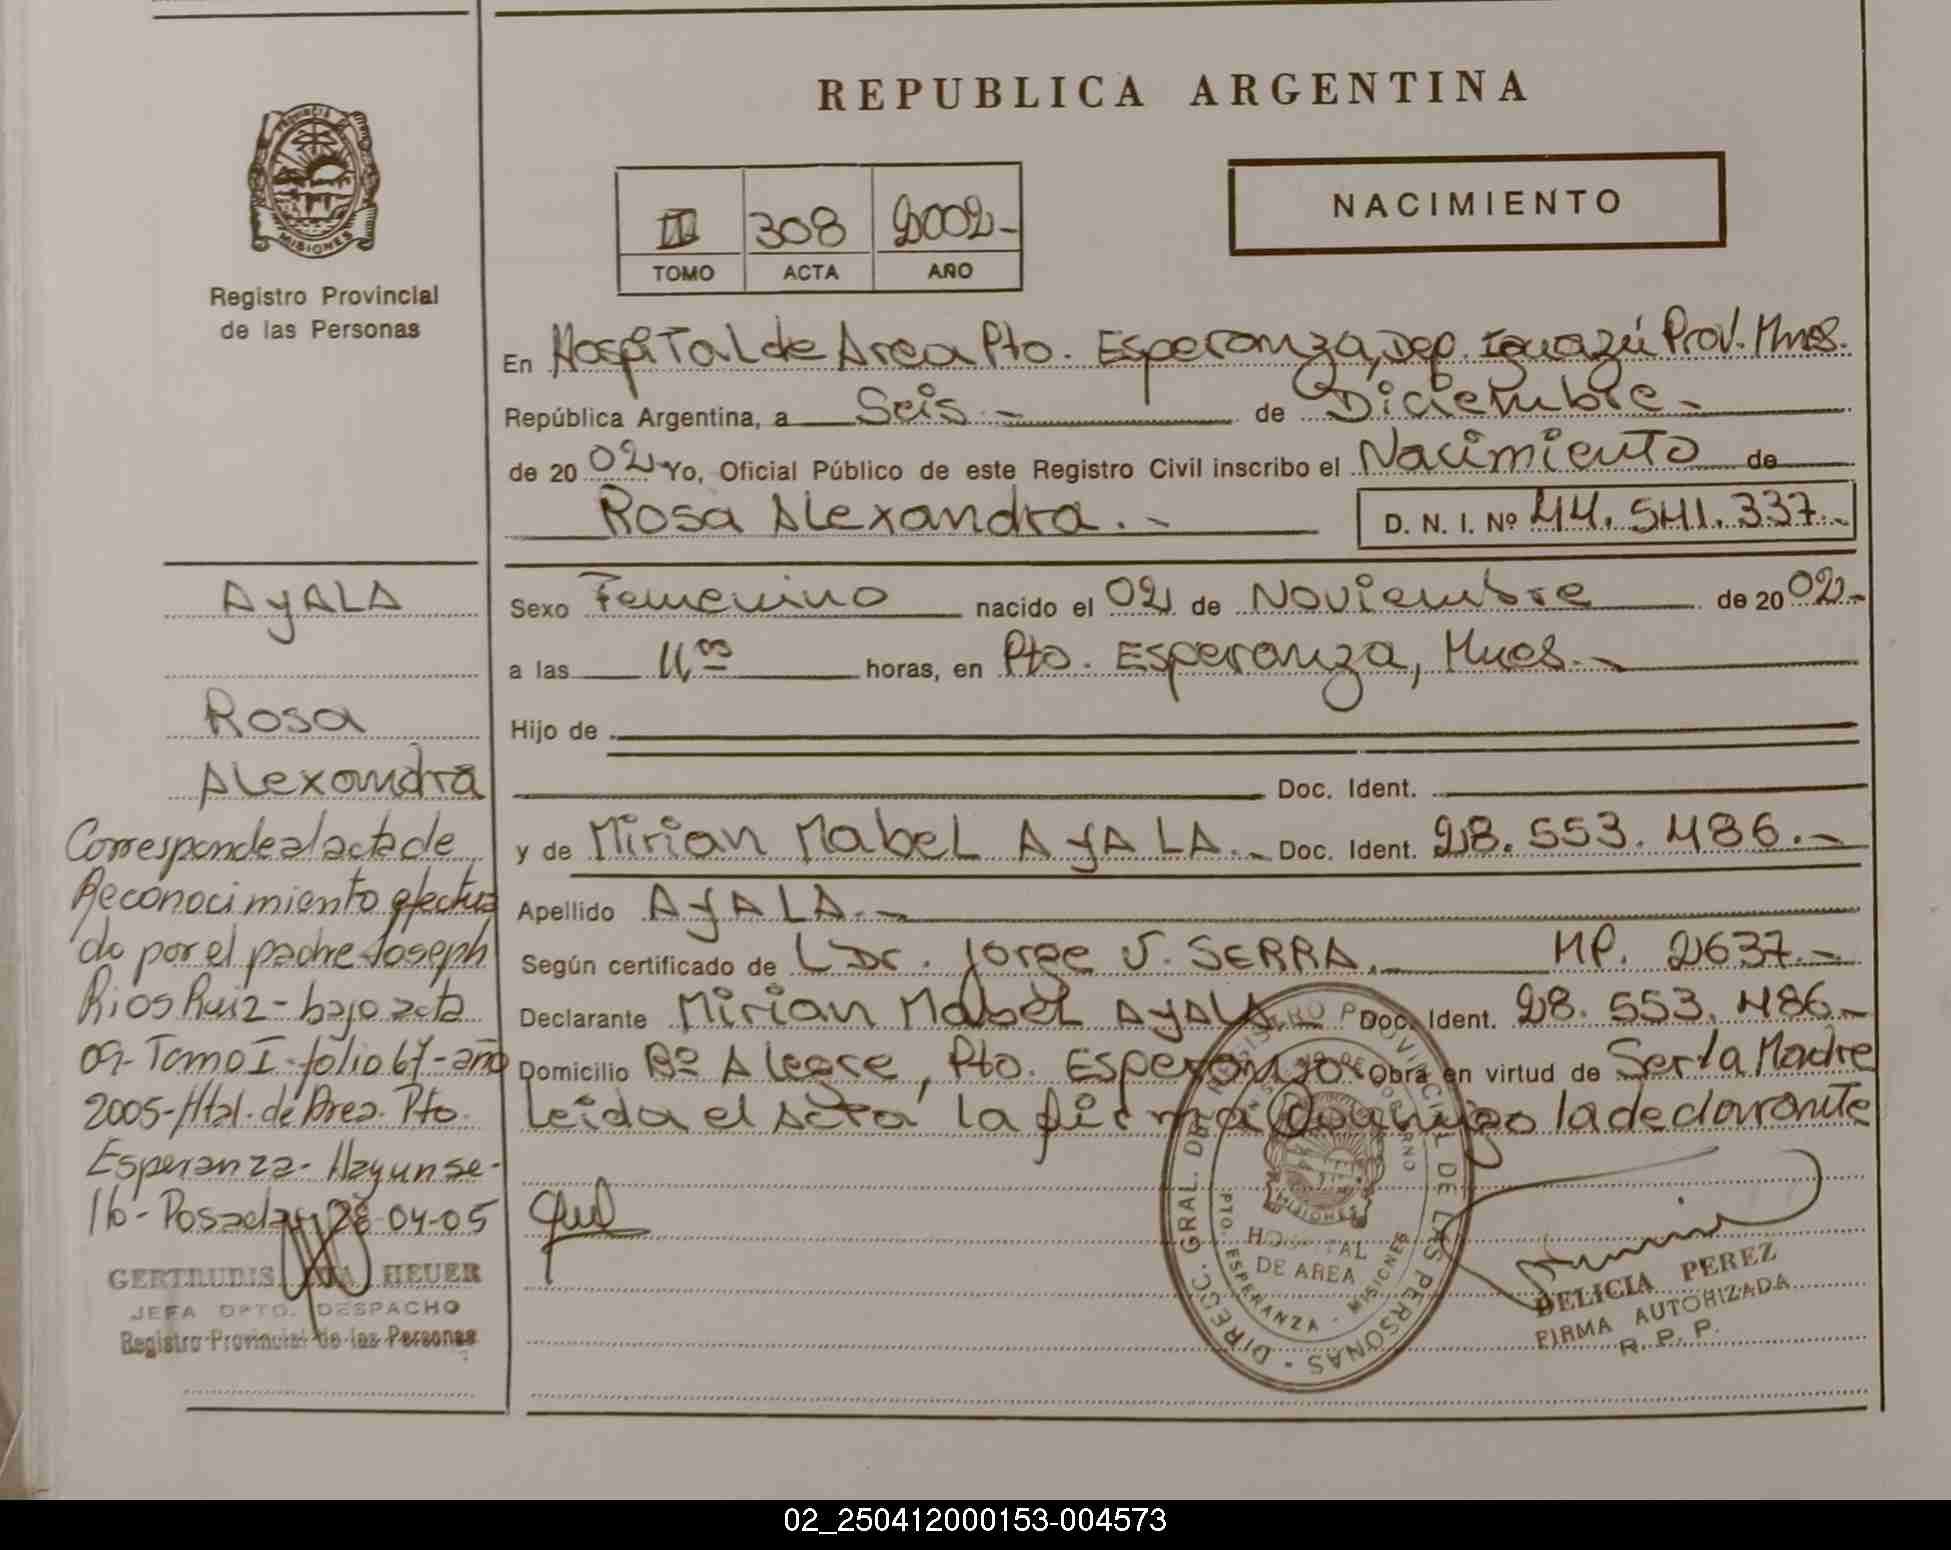 REPUBLICA ARGENTINA
PROVINCIA DE
MISIONES
Registro Provincial
de las Personas
III 308 2002-
TOMO ACTA AÑO
NACIMIENTO
En Hospital de Area Pto. Esperanza, Dep. Iguazú Prov. Mnes.
República Argentina, a Seis.- de Diciembre.-
de 2002.- Yo, Oficial Público de este Registro Civil inscribo el Nacimiento de
Rosa Alexandra.- D. N. I. Nº 44.541.337.-
Sexo Femenino nacido el 02 de Noviembre de 2002.-
a las 11,00 horas, en Pto. Esperanza, Mnes.-
Hijo de
Doc. Ident.
y de Mirian Mabel AyALA.- Doc. Ident. 28.553.486.-
Apellido AyALA.-
Según certificado de Dr. Jorge J. SERRA. MP. 2637.-
Declarante Mirian Mabel AyALA Doc. Ident. 28.553.486.-
Domicilio Bº Alegre, Pto. Esperanza Obra en virtud de Ser la Madre
Leida el Acta la firma conmigo la declarante
AyALA
Rosa
Alexandra
Corresponde al acta de
Reconocimiento efectua
do por el padre Joseph
Rios Ruiz - bajo acta
09- Tomo I - folio 67 - año
2005- Htal. de Area. Pto.
Esperanza- Hay un se-
llo- Posadas, 28-04-05
GERTRUDIS HEUER
JEFA DPTO. DESPACHO
Registro Provincial de las Personas
DIRECC. GRAL. DEL REGISTRO PROVINCIAL DE LAS PERSONAS
MISIONES
HOSPITAL
DE AREA
PTO. ESPERANZA - MISIONES
DELICIA PEREZ
FIRMA AUTORIZADA
R. P. P.
02_250412000153-004573